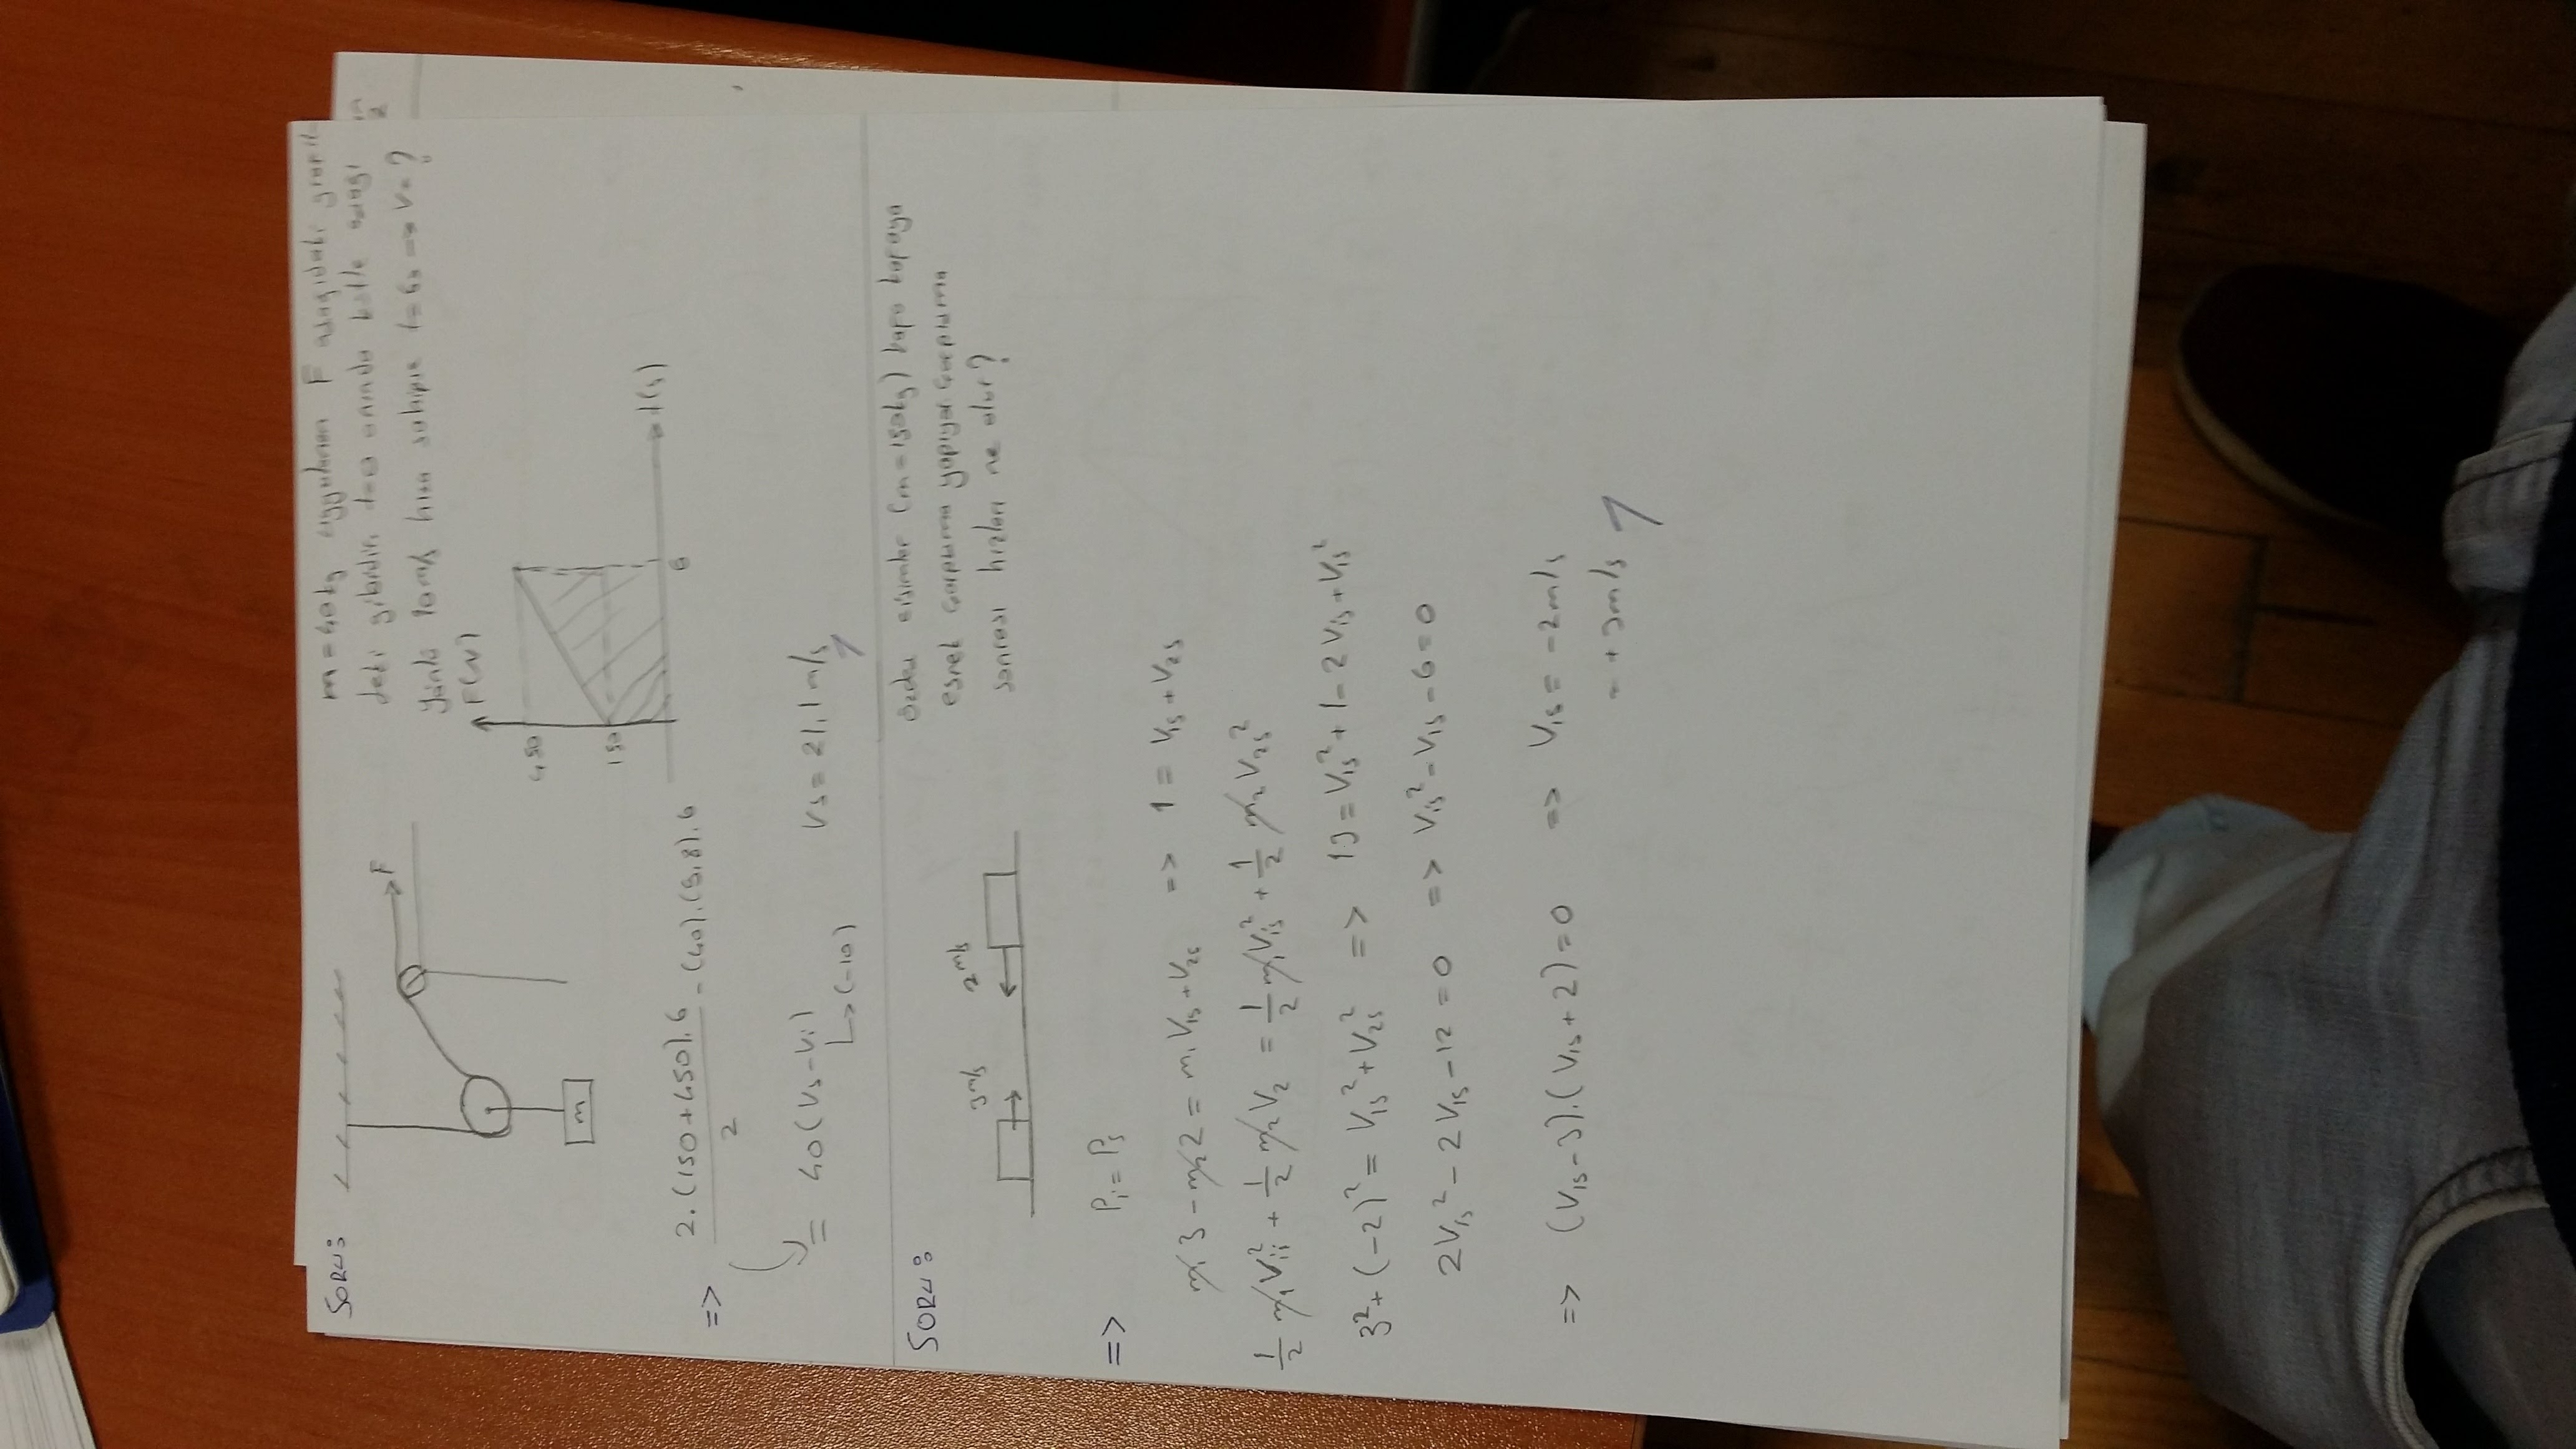 SORU:
m = 40kg uygulanan F aşağıdaki grafik-
deki gibidir. t=0 anında kütle aşağı
yönlü 10m/s hıza sahipse t=6s => V=?
F
m
F(N)
450
150
6
t(s)
=> 2.(150+450).6 / 2 - (40).(9,8).6
= 40(Vs-Vi)
↳(-10)
Vs = 21,1m/s
SORU:
özdeş cisimler (m=150kg) kafa kafaya
esnek çarpışma yapıyor. Çarpışma
sonrası hızları ne olur?
3m/s
2m/s
=> Pi = Ps
m₁3 - m₂2 = m₁V₁s + V₂s => 1 = V₁s + V₂s
1/2 m₁V₁i² + 1/2 m₂V₂ = 1/2 m₁V₁s² + 1/2 m₂V₂s²
3² + (-2)² = V₁s² + V₂s² => 13 = V₁s² + 1 - 2V₁s + V₁s²
2V₁s² - 2V₁s - 12 = 0 => V₁s² - V₁s - 6 = 0
=> (V₁s - 3).(V₁s + 2) = 0 => V₁s = -2m/s
= +3m/s